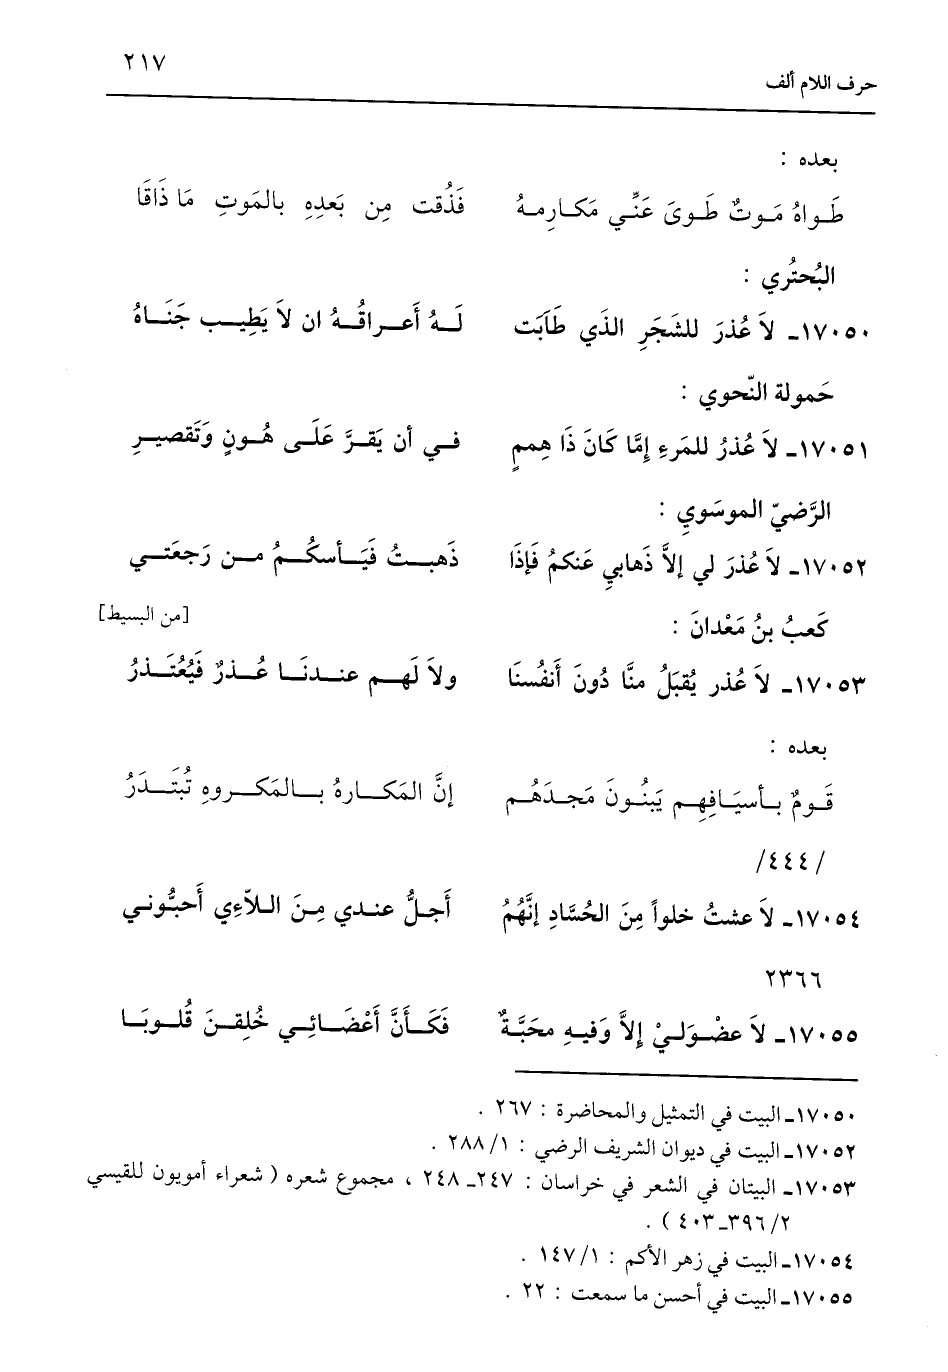 ٢١٧
حرف اللام ألف
بعده :
طَـواهُ مَـوتٌ طَـوىَ عَنِّـي مَكـارِمـهُ فَذُقت مِن بَعدِهِ بالمَوتِ مَا ذَاقَا
البُحتُري :
١٧٠٥٠ـ لاَ عُذرَ للشَجَرِ الذي طَابَت لَـهُ أَعـراقُـهُ ان لاَ يَطِيـب جَنَـاهُ
حَمولة النّحوي :
١٧٠٥١ـ لاَ عُذرُ للمَرءِ إمَّا كَانَ ذَا هِممٍ فـي أن يَقـرَّ عَلَـى هُـونٍ وَتَقصيـرِ
الرَّضيّ الموسَوي :
١٧٠٥٢ـ لاَ عُذرَ لي إلاَّ ذَهابي عَنكمُ فَإذَا ذَهبـتُ فَيَـأسكُـمُ مـن رَجعَتـي
كَعبُ بنُ مَعْدانَ : [من البسيط]
١٧٠٥٣ـ لاَ عُذر يُقبَلُ منَّا دُونَ أَنفُسنَا ولاَ لَهـم عنـدنَـا عُـذرٌ فَيُعْتَـذرُ
بعده :
قَـومٌ بـأسيَـافِهـم يَبنُـونَ مَجـدَهُـم إنَّ المَكـارهُ بـالمَكـروهِ تُبتَـدَرُ
/٤٤٤/
١٧٠٥٤ـ لاَ عشتُ خلواً مِنَ الحُسَّادِ إنَّهُمُ أَجـلُّ عنـدي مِـنَ الـلاّءِي أَحبُّونـي
٢٣٦٦
١٧٠٥٥ـ لاَ عضْـوَلـيْ إلاَّ وَفيـهِ محَبَّـةٌ فَكَـأنَّ أَعْضَـائِـي خُلِقـنَ قُلـوبَـا
١٧٠٥٠ـ البيت في التمثيل والمحاضرة : ٢٦٧ .
١٧٠٥٢ـ البيت في ديوان الشريف الرضي : ١/ ٢٨٨ .
١٧٠٥٣ـ البيتان في الشعر في خراسان : ٢٤٧ـ ٢٤٨ ، مجموع شعره ( شعراء أمويون للقيسي
٢/ ٣٩٦ـ٤٠٣ ) .
١٧٠٥٤ـ البيت في زهر الأكم : ١/ ١٤٧ .
١٧٠٥٥ـ البيت في أحسن ما سمعت : ٢٢ .